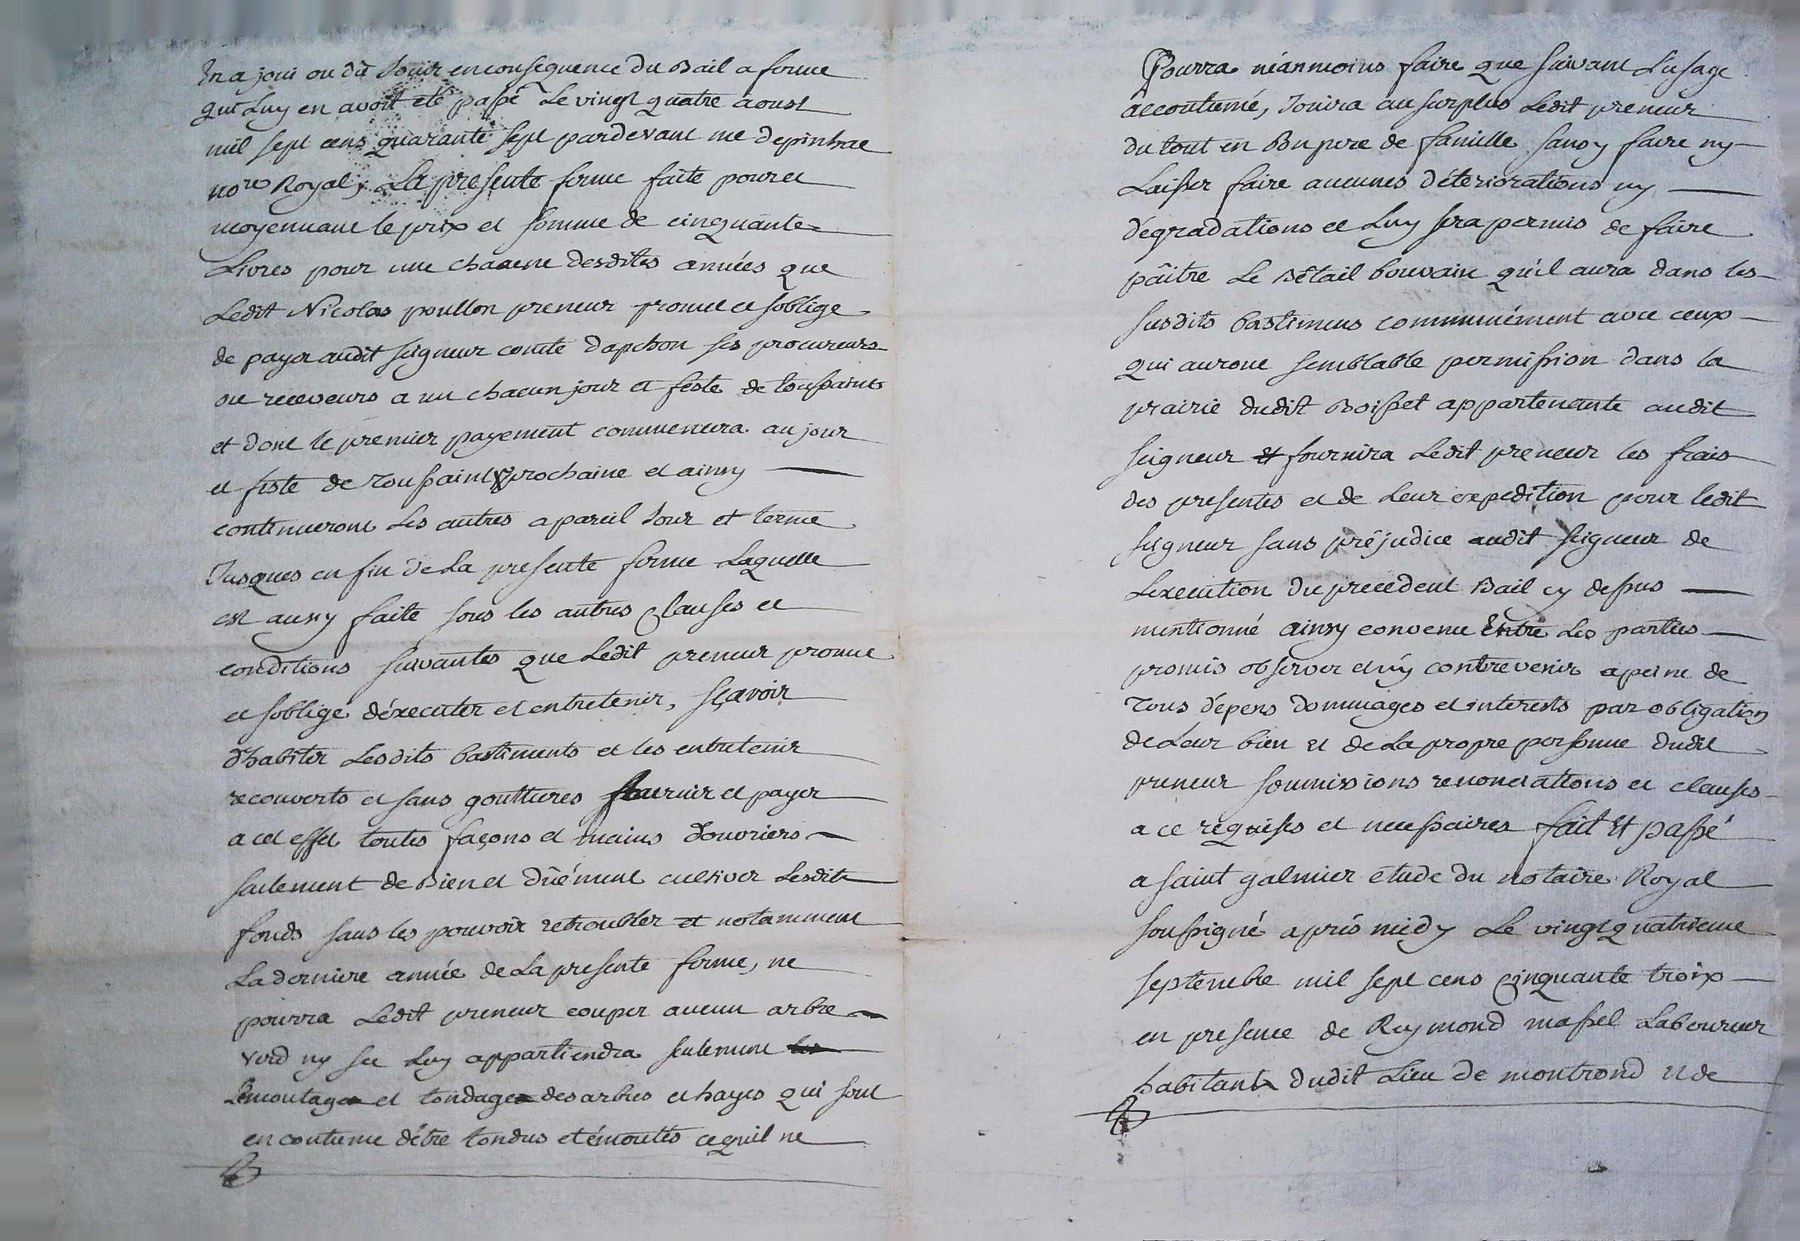 En a joui ou dû Jouir en consequence du Bail a ferme
qui Luy en avoit eté passé Le vingt quatre aoust
mil sept cens quarante sept pardevant me depinhac
nore Royal, La presente ferme faite pour et
moyennant le prix et somme de cinquante
Livres pour une chacune desdites années que
Ledit Nicolas poullon preneur promet et soblige
de payer audit seigneur comte dapchon ses procureurs
ou receveurs a un chacun jour et feste de toussaints
et dont le premier payement commencera au jour
et feste de Toussaint prochaine et ainsy
continueront Les autres a pareil Jour et terme
Jusques en fin de La presente ferme Laquelle
est aussy faite sous les autres Clauses et
conditions suivantes que Ledit preneur promet
et soblige déxecuter et entretenir, sçavoir
d'habiter Lesdits bastiments et les entretenir
recouverts et sans gouttures fournir et payer
a cet effet toutes façons et mains d'ouvriers
seulement de Bien et dûément cultiver Lesdits
fonds sans les pouvoir retroubler et notamment
La derniere année de La presente ferme, ne
pourra Ledit preneur couper aucun arbre
verd ny sec Luy appartiendra seulement
L'emoutage et tondage des arbres et hayes qui sont
en coutume d'être tondus et émoutés ce quil ne
Pourra néanmoins faire que suivant L'usage
accoutumé, Jouira au surplus Ledit preneur
du tout en Bon pere de famille sans y faire ny
Laisser faire aucunes déteriorations ny
dégradations et Luy sera permis de faire
pâitre Le Bêtail bouvain qu'il aura dans les
susdits bastimens communément avec ceux
qui auront semblable permission dans la
prairie dudit Boisset appartenante audit
seigneur et fournira Ledit preneur les frais
des presentes et de Leur expedition pour ledit
seigneur sans préjudice audit seigneur de
L'execution du precedent Bail cy dessus
mentionné ainsy convenu Entre Les parties
promis observer et n'y contrevenir a peine de
Tous dépens dommages et interests par obligation
de Leur bien et de La propre personne dudit
preneur soumissions renonciations et clauses
a ce requises et necessaires fait Et passé
a saint galmier etude du notaire Royal
soussigné aprés midy Le vingt quatrieme
septembre mil sept cens Cinquante trois
en presence de Reymond massel Laboureur
habitant dudit Lieu de montrond et de